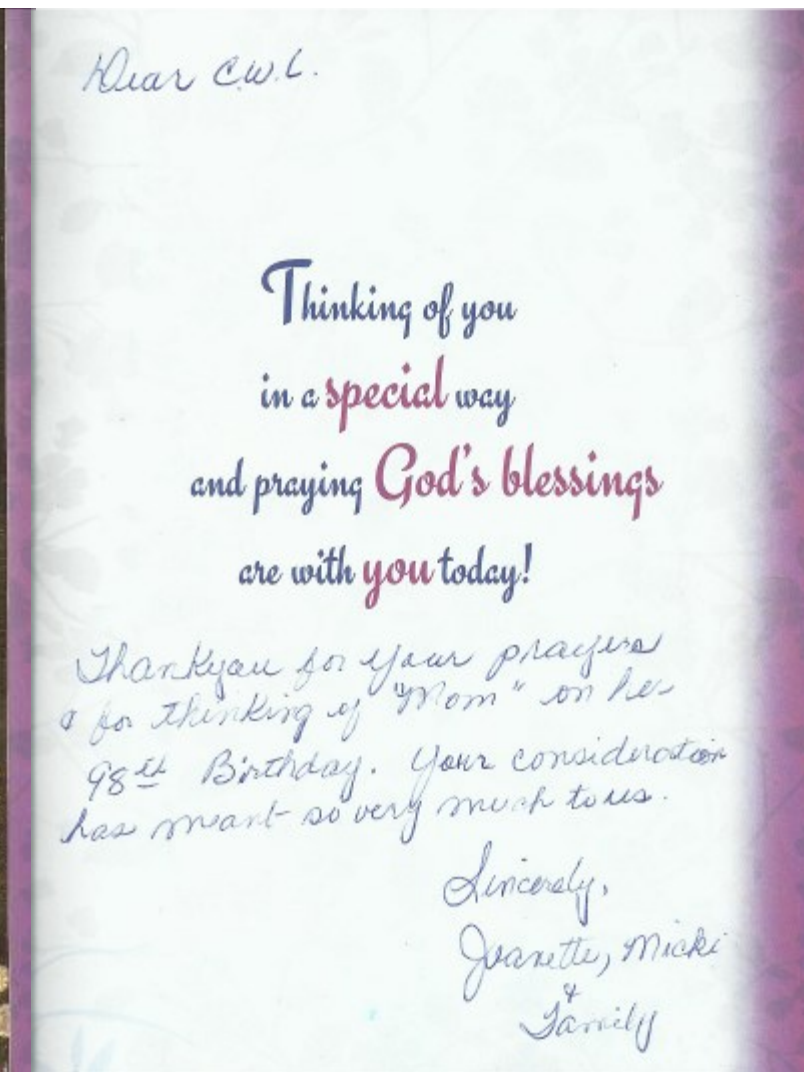 Dear C.W.L.
Thinking of you
in a special way
and praying God's blessings
are with you today!
Thankyou for your prayers
& for thinking of "Mom" on her
98th Birthday. Your consideration
has meant so very much to us.
Sincerely,
Joanette, Micki
&
Family